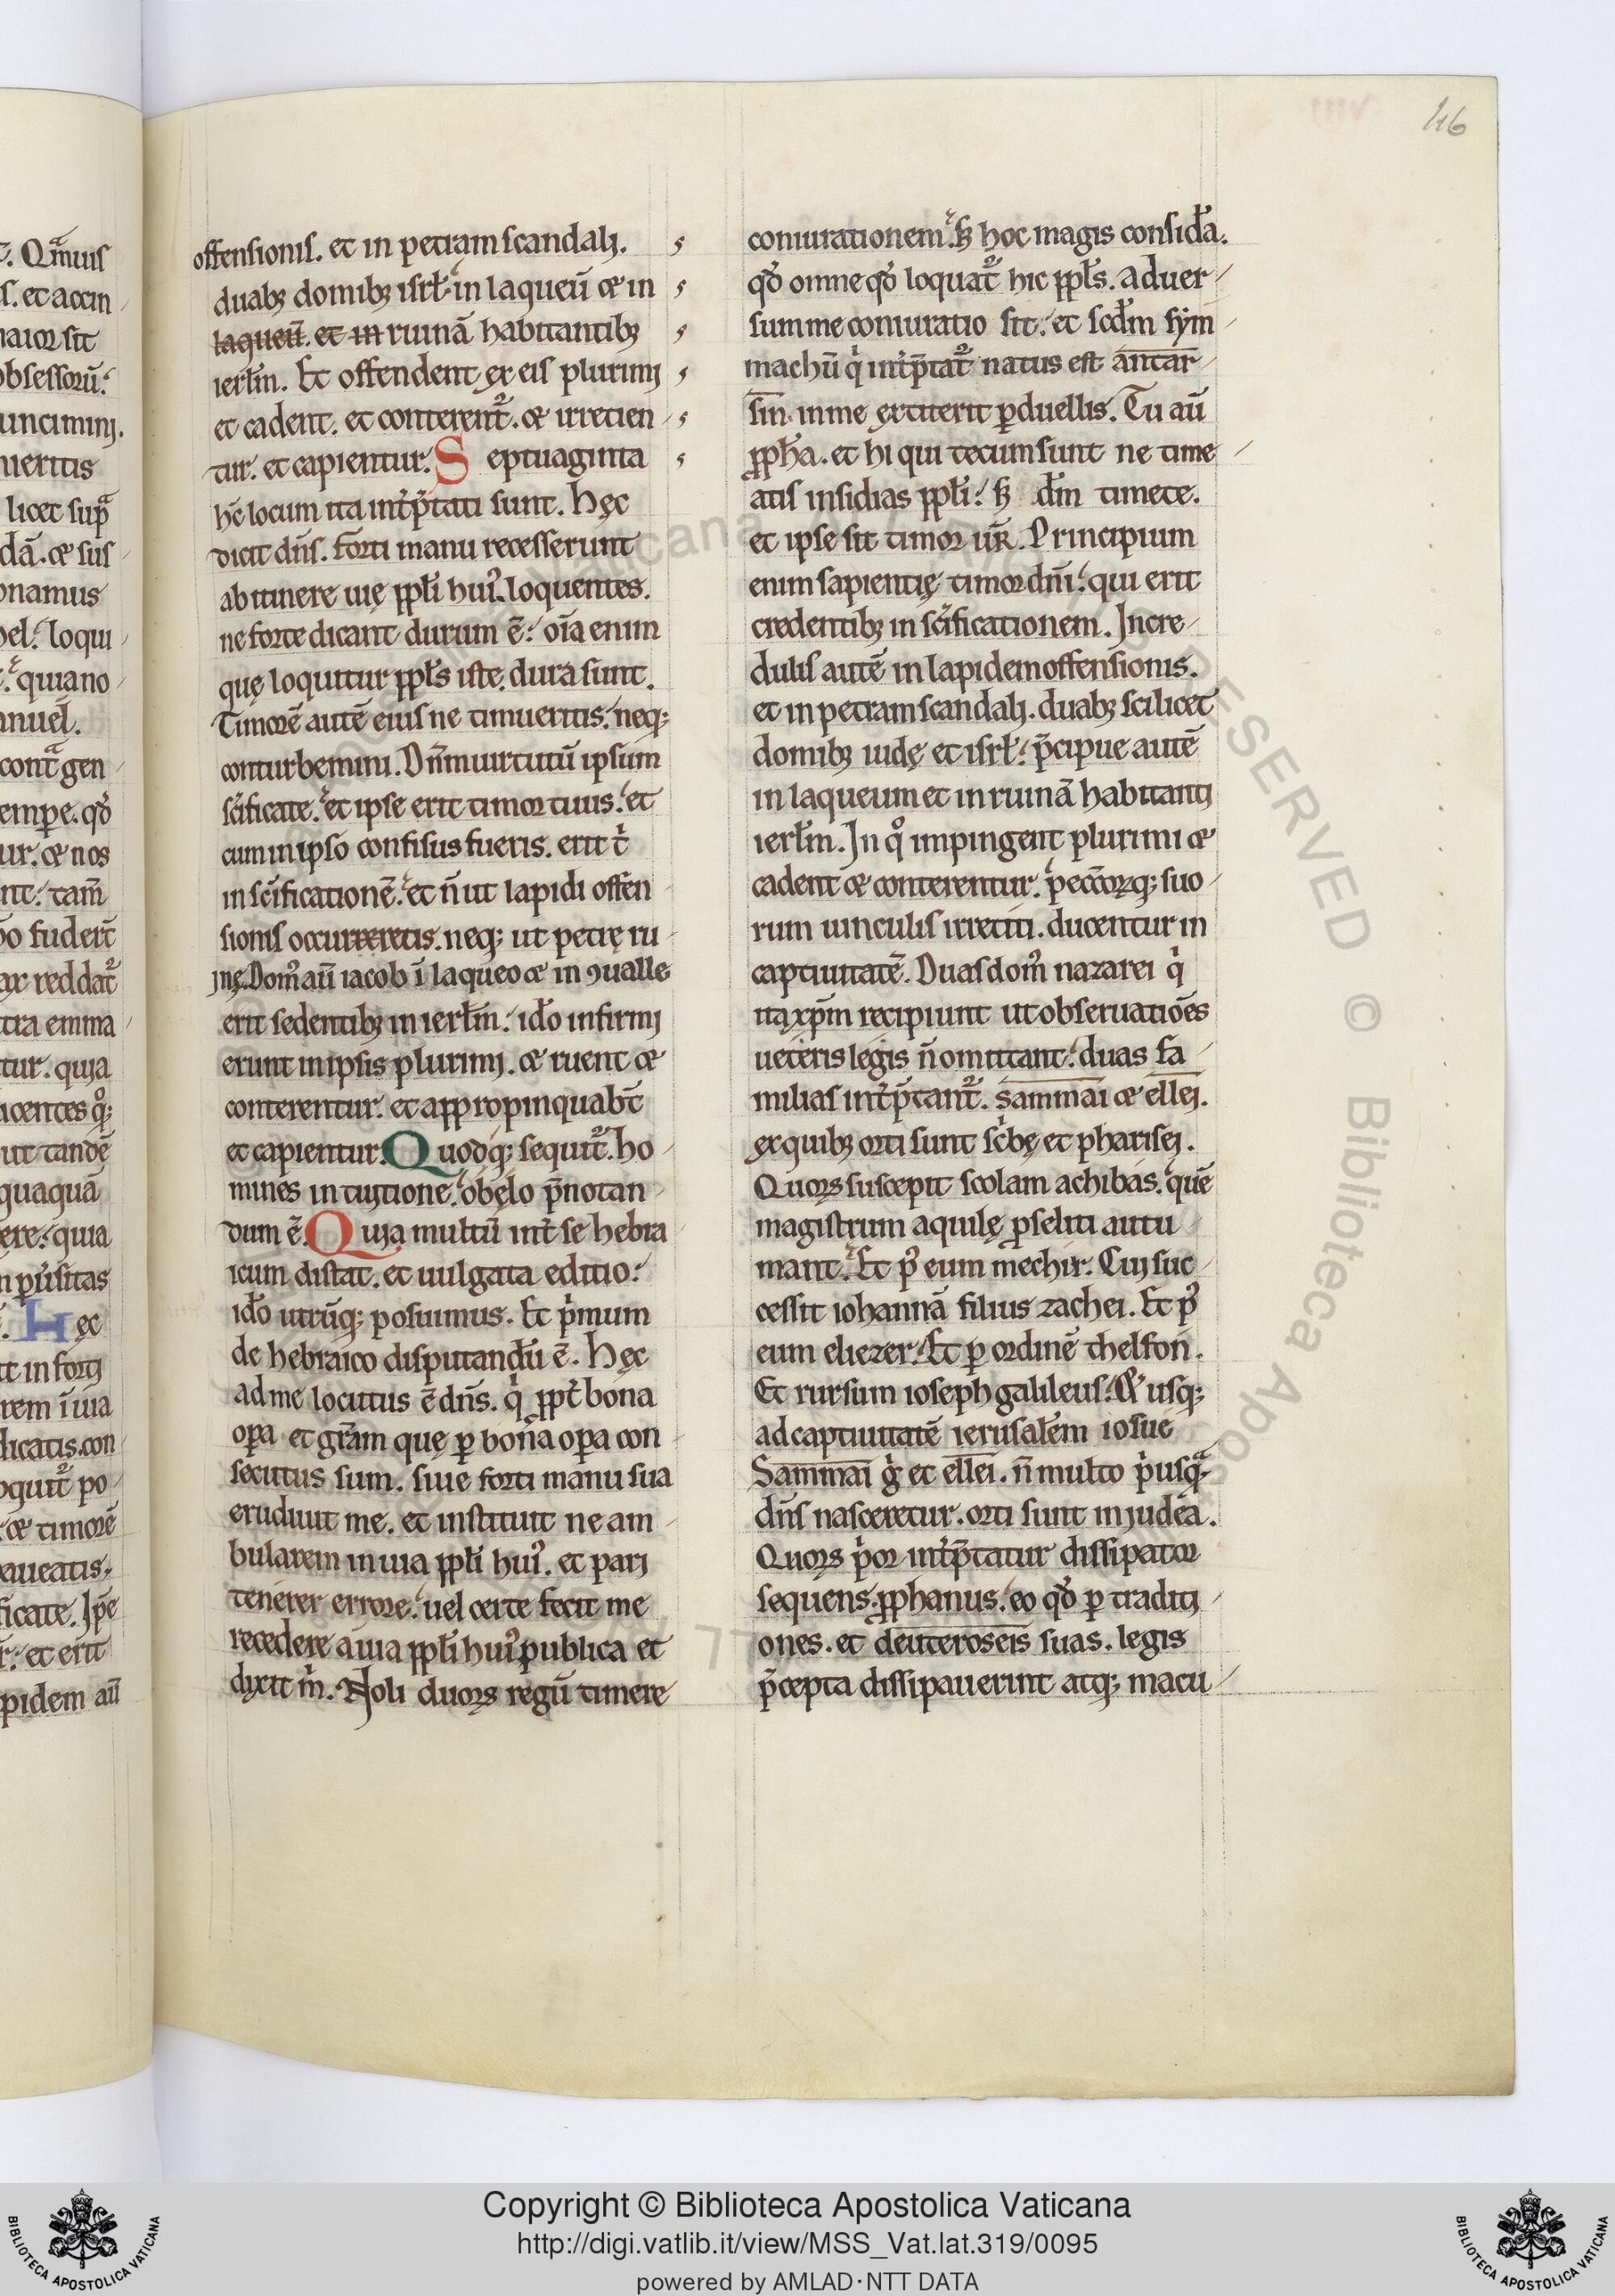 46
offensionis. et in petram scandalj.
duabꝫ domibꝫ isrł. in laqueū ⁊ in
laqueū. et in ruinā habitantibꝫ
ierłm. Et offendent ex eis plurimj
et cadent. et conterent᷑. ⁊ irretien
tur. et capientur. Septuaginta
hc̄ locum ita int̉p̄tati sunt. Hęc
dicit dn̄s. forti manu recesserunt
ab itinere uię ppłi hui᾽. loquentes.
ne forte dicant durum ē. oīa enim
quę loquitur ppłs iste. dura sunt.
Timorē autē eius ne timueritis. neq;
conturbemini. Dn̄m uirtutū ipsum
scīficate. et ipse erit timor tuus. et
cum in ipso confisus fueris. erit t̉
in scīficationē. et n̄ ut lapidi offen
sionis occurreretis. neq; ut petrę ru
inę. Dom᾽ aū iacob ī laqueo ⁊ in ꝯualle
erit sedentibꝫ in ierłm. ido infirmj
erunt in ipsis plurimj. ⁊ ruent ⁊
conterentur. et appropinquabt̄
et capientur. Quodq; sequit᷑. ho
mines in tuitione. obęlo p̄notan
dum ē. Quia multū int̉ se hebra
icum distat. et uulgata editio.
ido utrūq; posuimus. Et p̉mum
de hebraico disputandū ē. Hęc
ad me locutus ē dn̄s. q̉ ppt̉ bona
oꝑa et gr̄am quę ꝑ bona oꝑa con
secutus sum. siue forti manu sua
erudiuit me. et instituit ne am
bularem in uia ppłi hui᾽. et parj
tenerer errore. uel certe fecit me
recedere a uia ppłi hui᾽ publica et
dixit m̉. Noli duoꝝ regū timere
coniurationem. sꝫ hoc magis consida.
qđ omne qđ loquat᷑ hic ppłs. aduer
sum me coniuratio sit. et scdm sym
machū q̉ int̉p̄tat᷑ natus est antar
sin. in me extiterit ꝑduellis. Tu aū
ꝓpha. et hi qui tecum sunt ne time
atis insidias ppłi. sꝫ dm̄ timete.
et ipse sit timor ur̄. Principium
enim sapientię timor dn̄i. qui erit
credentibꝫ in scīficationem. Incre
dulis autē in lapidem offensionis.
et in petram scandalj. duabꝫ scilicet
domibꝫ iudę et isrł. p̄cipue autē
in laqueum et in ruinā habitantj
ierłm. In q̊ impingent plurimi ⁊
cadent ⁊ conterentur. peccōꝝq; suo
rum uinculis irretiti. ducentur in
captiuitatē. Duas dom᾽ nazarei q̉
ita xp̄m recipiunt ut obseruatiōes
ueteris legis n̄ omittant. duas fa
milias int̉p̄tant᷑. sammai ⁊ ellej.
ex quibꝫ orti sunt sc̉bę et pharisej.
Quoꝝ suscepit scolam achibas. quē
magistrum aquilę ꝓseliti autu
mant. Et p᾽ eum mechir. Cuj suc
cessit iohannā filius zachei. Et p᾽
eum eliezer. Et ꝑ ordinē thelfon.
Et rursum ioseph galileus. & usq;
ad captiuitatē ierusałem iosue
Sammai g̉ et ellei. n̄ multo p̉usq̄
dn̄s nasceretur. orti sunt in judea.
Quoꝝ p̉or int̉p̄tatur dissipator
sequens. ꝓphanus. eo qđ ꝑ traditi
ones. et deuteroseis suas. legis
p̄cepta dissipauerint atq; macu
Copyright © Biblioteca Apostolica Vaticana
http://digi.vatlib.it/view/MSS_Vat.lat.319/0095
powered by AMLAD·NTT DATA
BIBLIOTECA APOSTOLICA VATICANA
BIBLIOTECA APOSTOLICA VATICANA